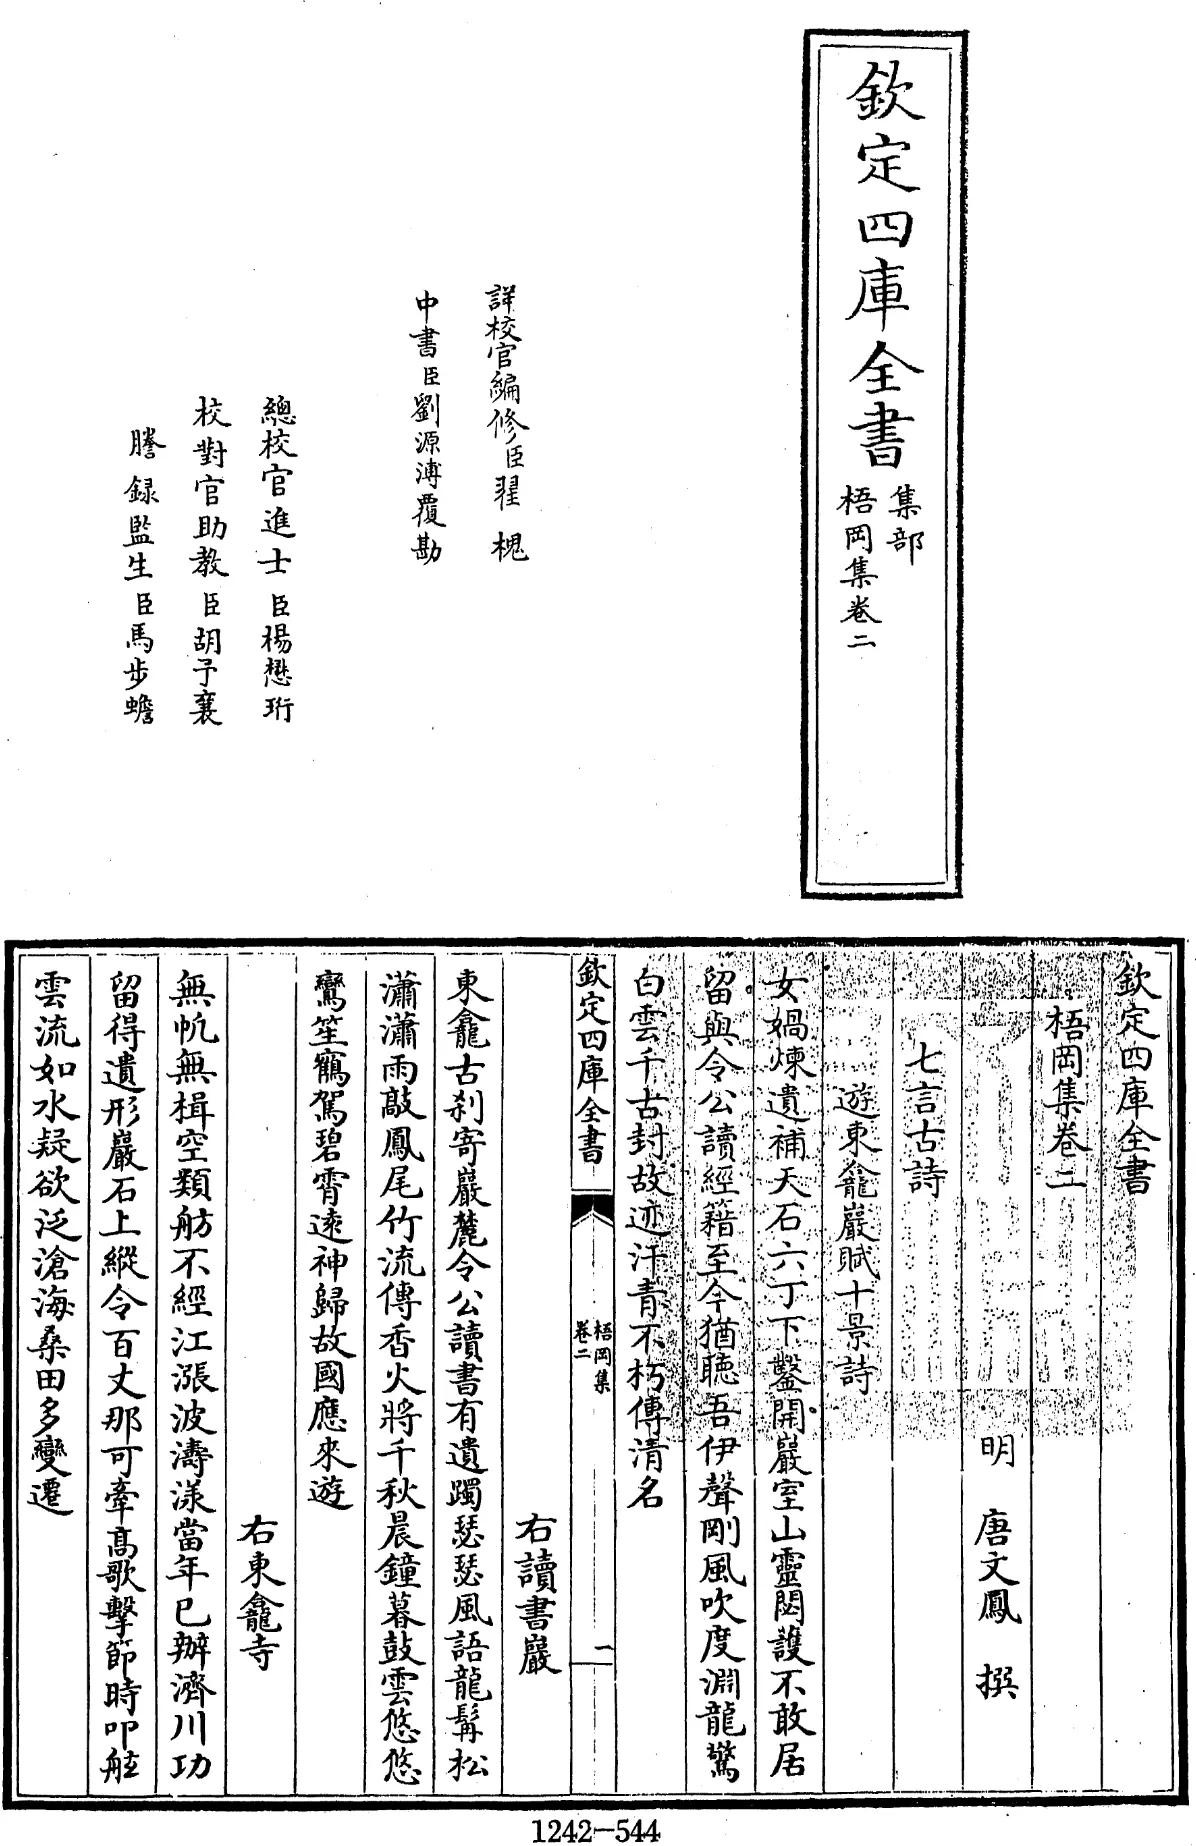 欽定四庫全書
集部
梧岡集卷二
詳校官編修臣翟槐
中書臣劉源溥覆勘
總校官進士臣楊懋珩
校對官助教臣胡予襄
謄録監生臣馬步蟾
欽定四庫全書
梧岡集卷二
明 唐文鳳 撰
七言古詩
遊東龕巖賦十景詩
女媧煉遺補天石六丁下鑿開巖室山靈閟護不敢居
留與令公讀經籍至今猶聽吾伊聲剛風吹度淵龍驚
白雲千古封故迹汗青不朽傳清名
欽定四庫全書
梧岡集
卷二
一
右讀書巖
東龕古刹寄巖麓令公讀書有遺躅瑟瑟風語龍髯松
瀟瀟雨敲鳳尾竹流傳香火將千秋晨鐘暮鼓雲悠悠
鸞笙鶴駕碧霄遠神歸故國應來遊
右東龕寺
無帆無楫空類舫不經江漲波濤漾當年已辦濟川功
留得遺形巖石上縱令百丈那可牽高歌擊節時叩舷
雲流如水疑欲泛滄海桑田多變遷
1242-544